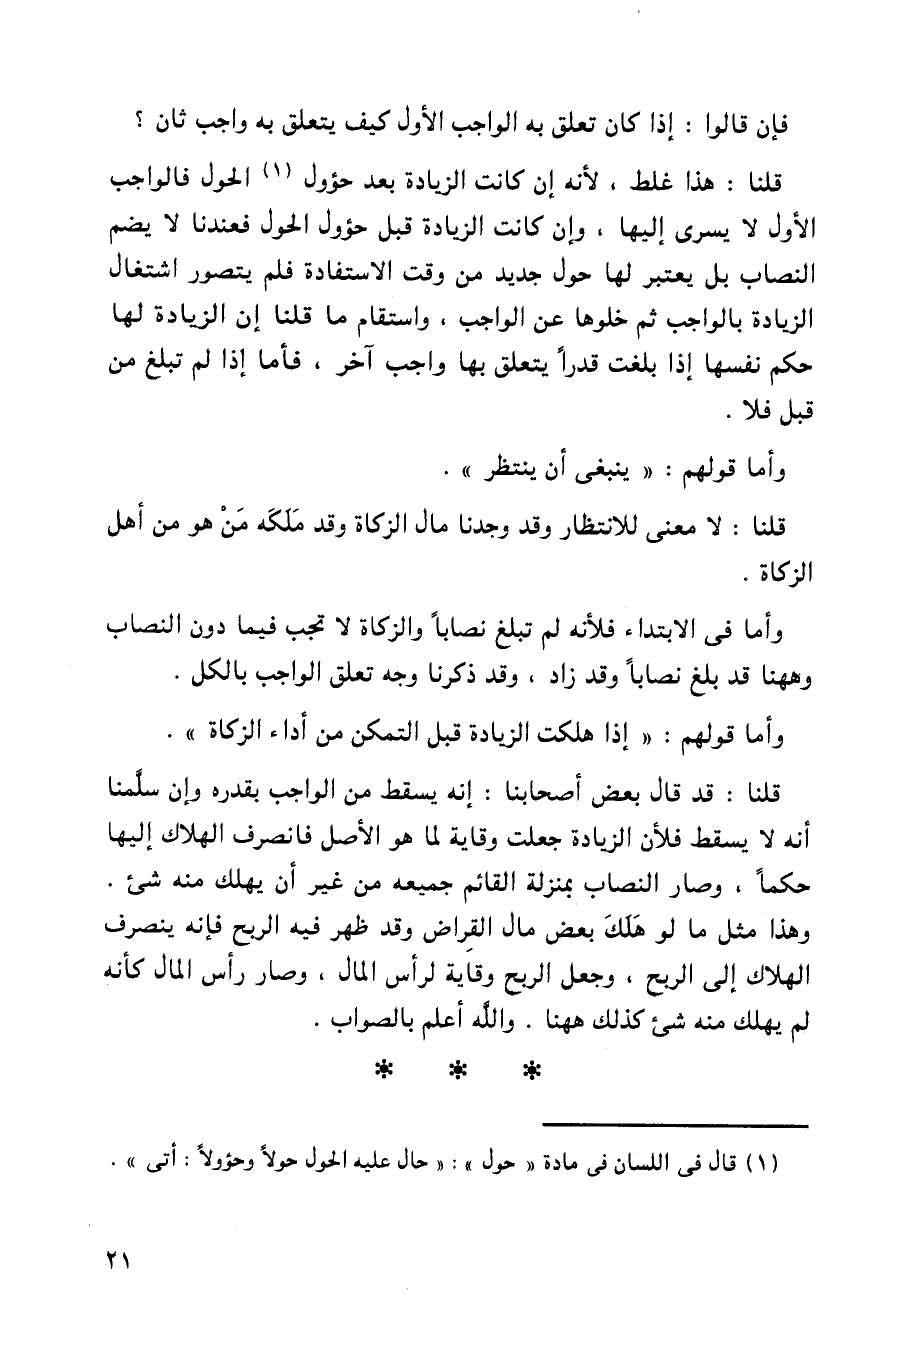 فإن قالوا : إذا كان تعلق به الواجب الأول كيف يتعلق به واجب ثان ؟
قلنا : هذا غلط ، لأنه إن كانت الزيادة بعد حؤول (١) الحول فالواجب
الأول لا يسرى إليها ، وإن كانت الزيادة قبل حؤول الحول فعندنا لا يضم
النصاب بل يعتبر لها حول جديد من وقت الاستفادة فلم يتصور اشتغال
الزيادة بالواجب ثم خلوها عن الواجب ، واستقام ما قلنا إن الزيادة لها
حكم نفسها إذا بلغت قدراً يتعلق بها واجب آخر ، فأما إذا لم تبلغ من
قبل فلا .
وأما قولهم : « ينبغى أن ينتظر » .
قلنا : لا معنى للانتظار وقد وجدنا مال الزكاة وقد مَلَكَه مَنْ هو من أهل
الزكاة .
وأما فى الابتداء فلأنه لم تبلغ نصاباً والزكاة لا تجب فيما دون النصاب
وههنا قد بلغ نصاباً وقد زاد ، وقد ذكرنا وجه تعلق الواجب بالكل .
وأما قولهم : « إذا هلكت الزيادة قبل التمكن من أداء الزكاة » .
قلنا : قد قال بعض أصحابنا : إنه يسقط من الواجب بقدره وإن سلَّمنا
أنه لا يسقط فلأن الزيادة جعلت وقاية لما هو الأصل فانصرف الهلاك إليها
حكماً ، وصار النصاب بمنزلة القائم جميعه من غير أن يهلك منه شئ .
وهذا مثل ما لو هَلَكَ بعض مال القِراض وقد ظهر فيه الربح فإنه ينصرف
الهلاك إلى الربح ، وجعل الربح وقاية لرأس المال ، وصار رأس المال كأنه
لم يهلك منه شئ كذلك ههنا . واللَّه أعلم بالصواب .
* * *
(١) قال فى اللسان فى مادة « حول » : « حال عليه الحول حولاً وحؤولاً : أتى » .
٢١